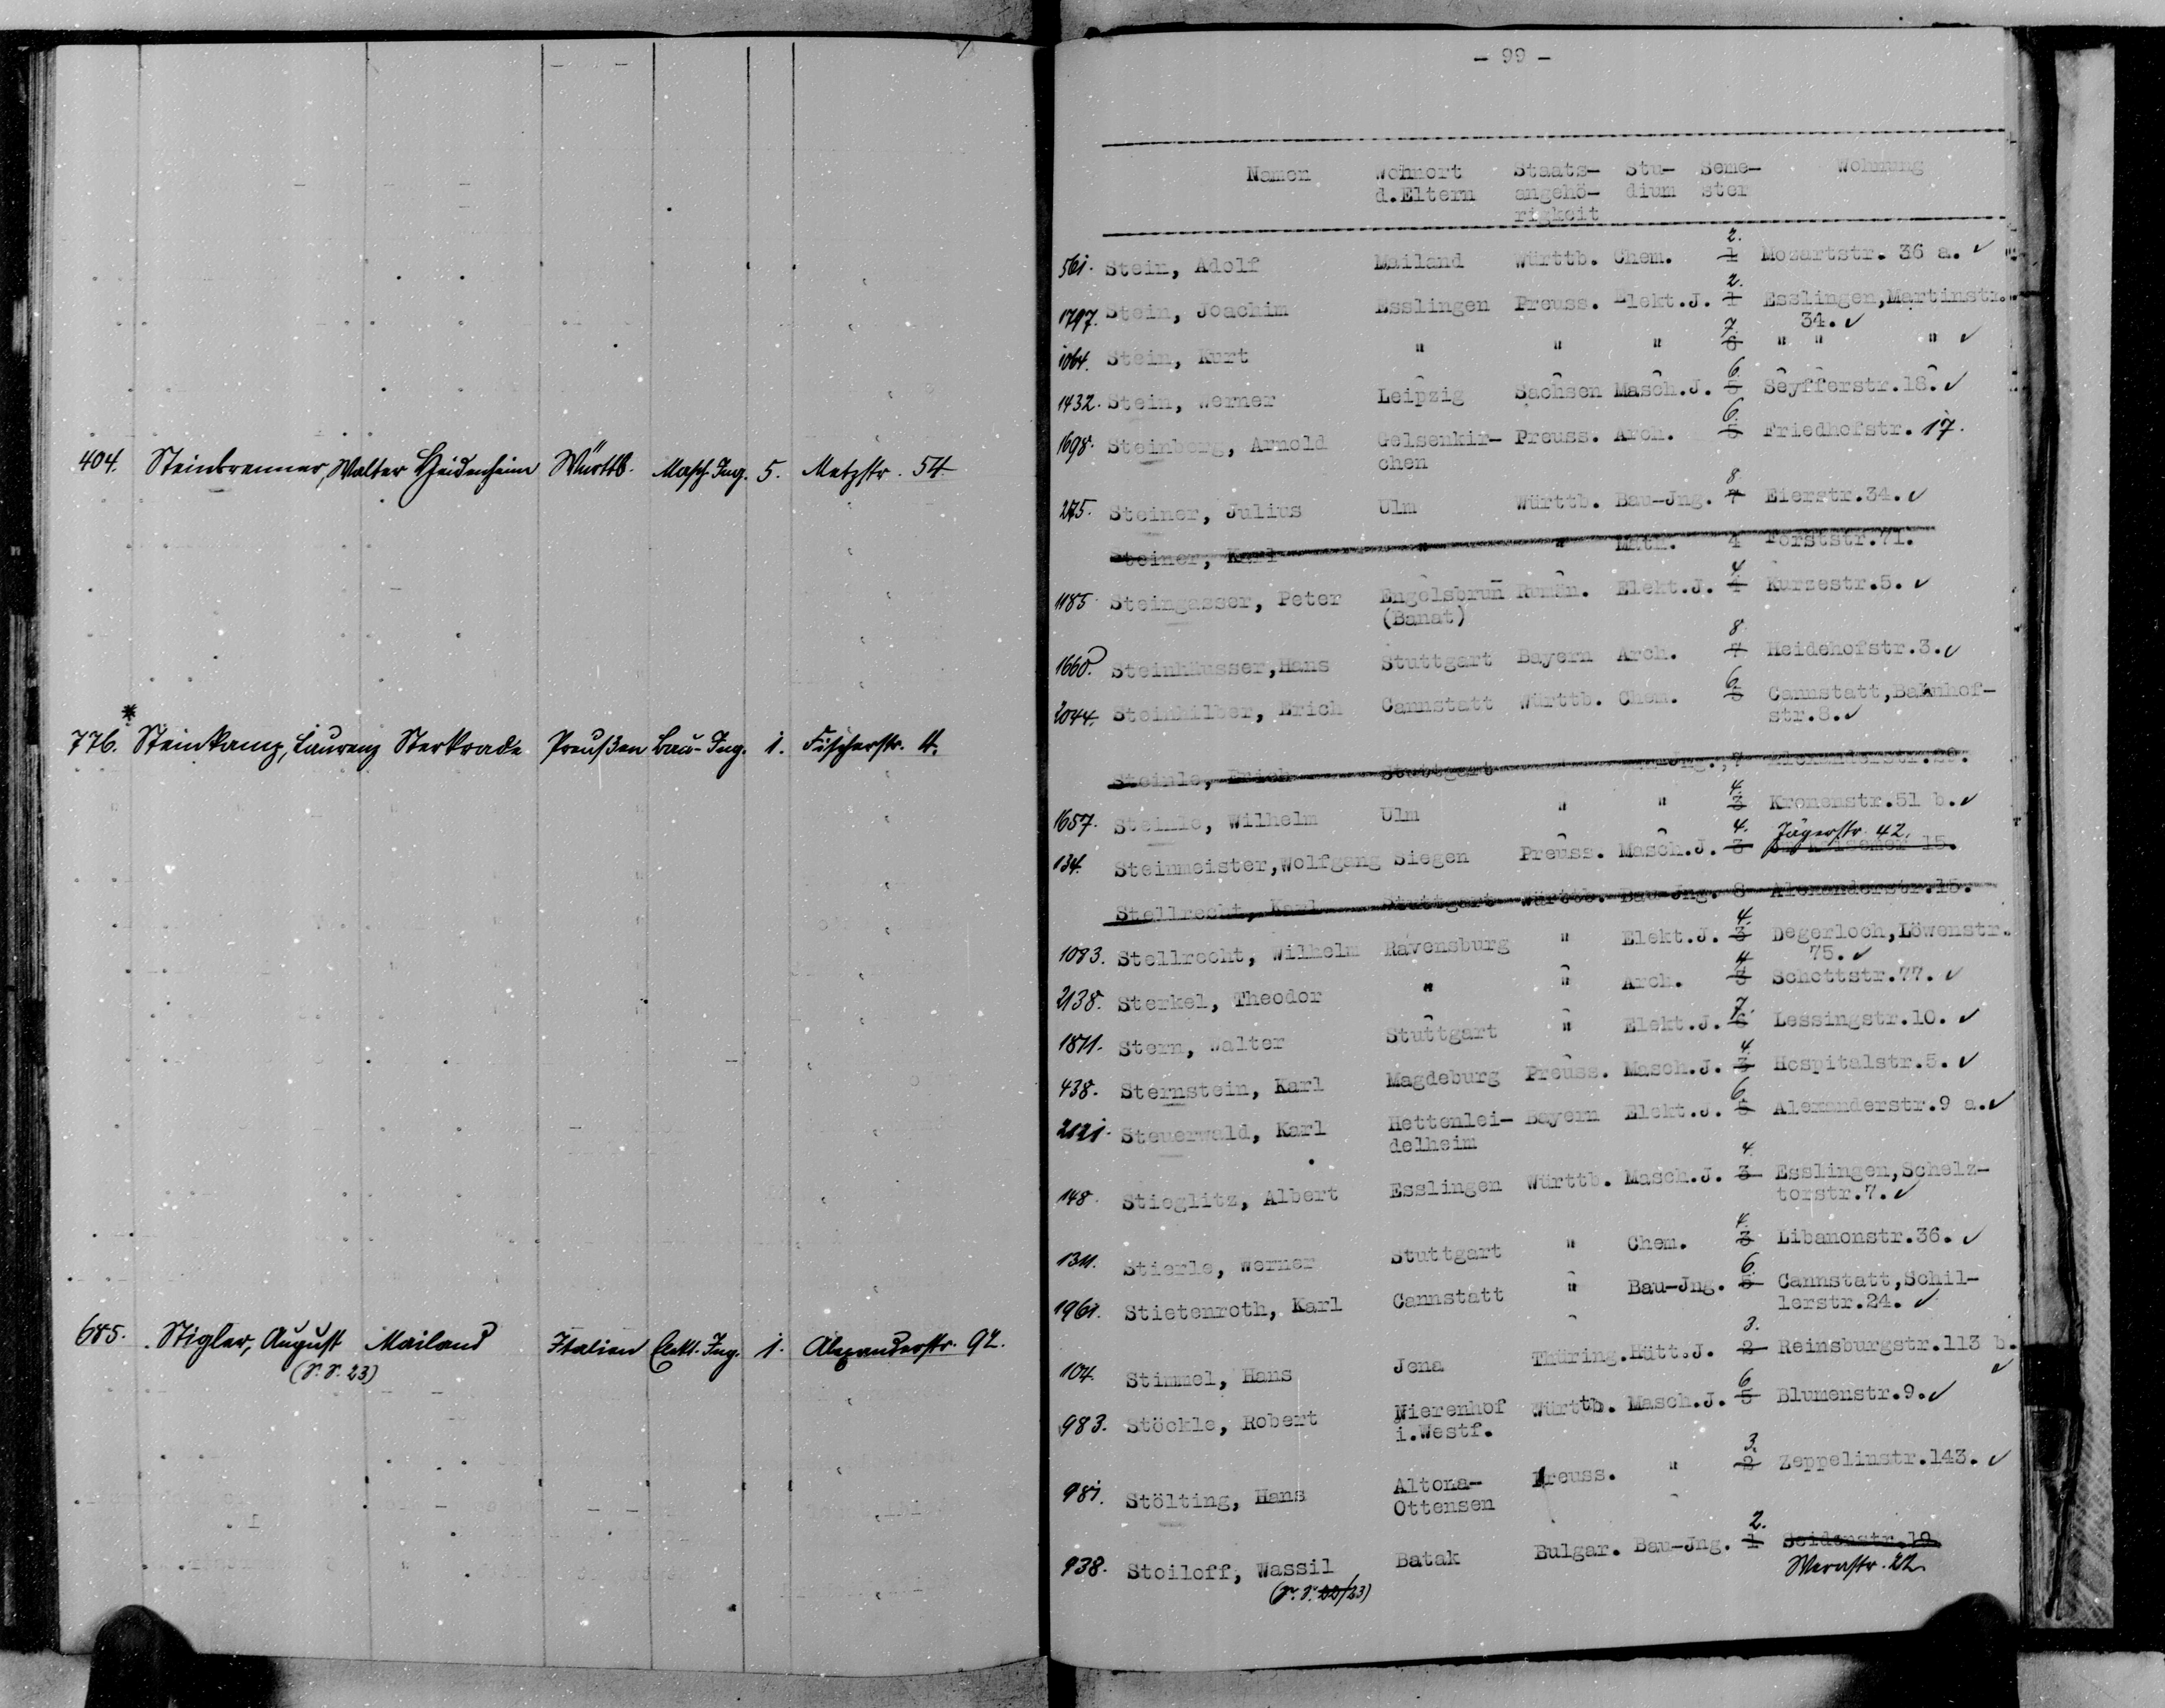 404. Steinbrenner, Walter Heidenheim Württb. Masch. Ing. 5. Metzstr. 54
* 776. Steinkamp, Laurenz Sterkrade Preußen Bau-Ing. 1. Fischerstr. 4.
685. Stigler, August Mailand Italien Elekt. Ing. 1. Alexanderstr. 92.
- 99 -
Namen Wohnort Staats- Stu- Seme- Wohnung
d.Eltern angehö- dium ster
rigkeit
2.
561. Stein, Adolf Mailand Württb. Chem. 1 Mozartstr. 36 a. ✓
2.
1797. Stein, Joachim Esslingen Preuss. Elekt.J. 1 Esslingen,Martinstr.
34. ✓
7.
1064. Stein, Kurt " " " 6 " " " ✓
6.
1432. Stein, Werner Leipzig Sachsen Masch.J. 5 Seyfferstr.18. ✓
6.
1698. Steinberg, Arnold Gelsenkir- Preuss. Arch. 5 Friedhofstr. 17.
chen
8
275. Steiner, Julius Ulm Württb. Bau-Jng. 7 Eierstr.34. ✓
Steiner, Karl " " 4 Forststr.71.
4
1185. Steingasser, Peter Engelsbrun Rumän. Elekt.J. Kurzestr.5. ✓
(Banat)
8
1660. Steinhäusser,Hans Stuttgart Bayern Arch. 7 Heidehofstr.3. ✓
6.
2044. Steinhilber, Erich Cannstatt Württb. Chem. 5 Cannstatt,Bahnhof-
str.8. ✓
Steinle, Erich Stuttgart Jng. 7 Alexanderstr.29.
4.
1657. Steinle, Wilhelm Ulm " " 3 Kronenstr.51 b. ✓
4. Jägerstr. 42.
134. Steinmeister,Wolfgang Siegen Preuss. Masch.J. 3 15.
Stellrecht, Karl Stuttgart Württb. Bau-Jng. 8 Alexanderstr.15.
4.
1083. Stellrecht, Wilhelm Ravensburg " Elekt.J. 3 Degerloch,Löwenstr.
75. ✓
4
2138. Sterkel, Theodor " " Arch. 3 Schottstr.77. ✓
7.
1871. Stern, Walter Stuttgart " Elekt.J. 6 Lessingstr.10. ✓
4.
438. Sternstein, Karl Magdeburg Preuss. Masch.J. 3 Hospitalstr.5. ✓
6
2121. Steuerwald, Karl Hettenlei- Bayern Elekt.J. 5 Alexanderstr.9 a. ✓
delheim
4.
148. Stieglitz, Albert Esslingen Württb. Masch.J. 3 Esslingen,Schelz-
torstr.7. ✓
4.
1311. Stierle, Werner Stuttgart " Chem. 3 Libanonstr.36. ✓
6.
1961. Stietenroth, Karl Cannstatt " Bau-Jng. 5 Cannstatt,Schil-
lerstr.24. ✓
3.
104. Stimmel, Hans Jena Thüring. Hütt.J. 2 Reinsburgstr.113 b.
✓
6
983. Stöckle, Robert Nierenhof Württb. Masch.J. 5 Blumenstr.9. ✓
i.Westf.
3.
981. Stölting, Hans Altona- Preuss. " 2 Zeppelinstr.143. ✓
Ottensen
2.
938. Stoiloff, Wassil Batak Bulgar. Bau-Jng. 1 Seidenstr.19
Werastr. 22